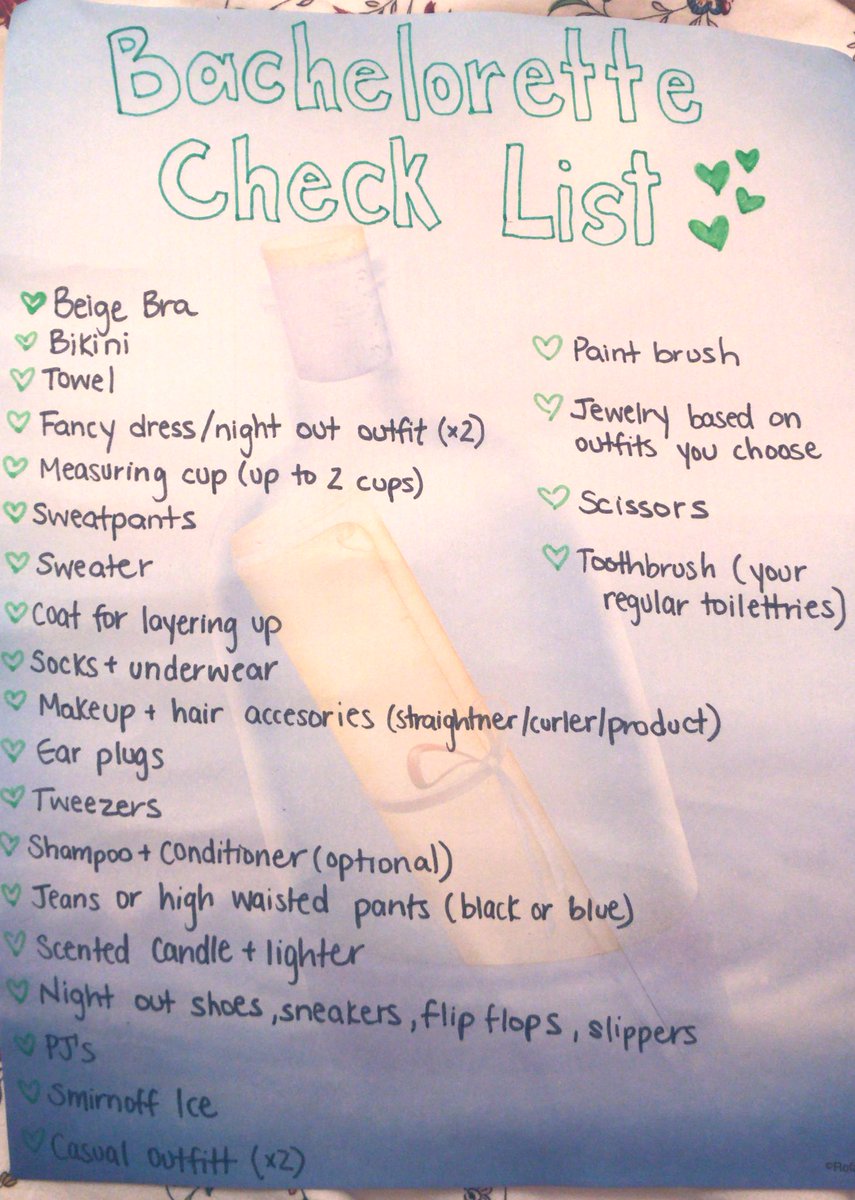 Bachelorette
Check List
Beige Bra
Bikini
Towel
Fancy dress/night out outfit (x2)
Measuring cup (up to 2 cups)
Sweatpants
Sweater
Coat for layering up
Socks + underwear
Makeup + hair accesories (straightner/curler/product)
Ear plugs
Tweezers
Shampoo + Conditioner (optional)
Jeans or high waisted pants (black or blue)
Scented Candle + lighter
Night out shoes, sneakers, flip flops, slippers
PJ's
Smirnoff Ice
Casual outfitt (x2)
Paint brush
Jewelry based on
outfits you choose
Scissors
Toothbrush (your
regular toilettries)